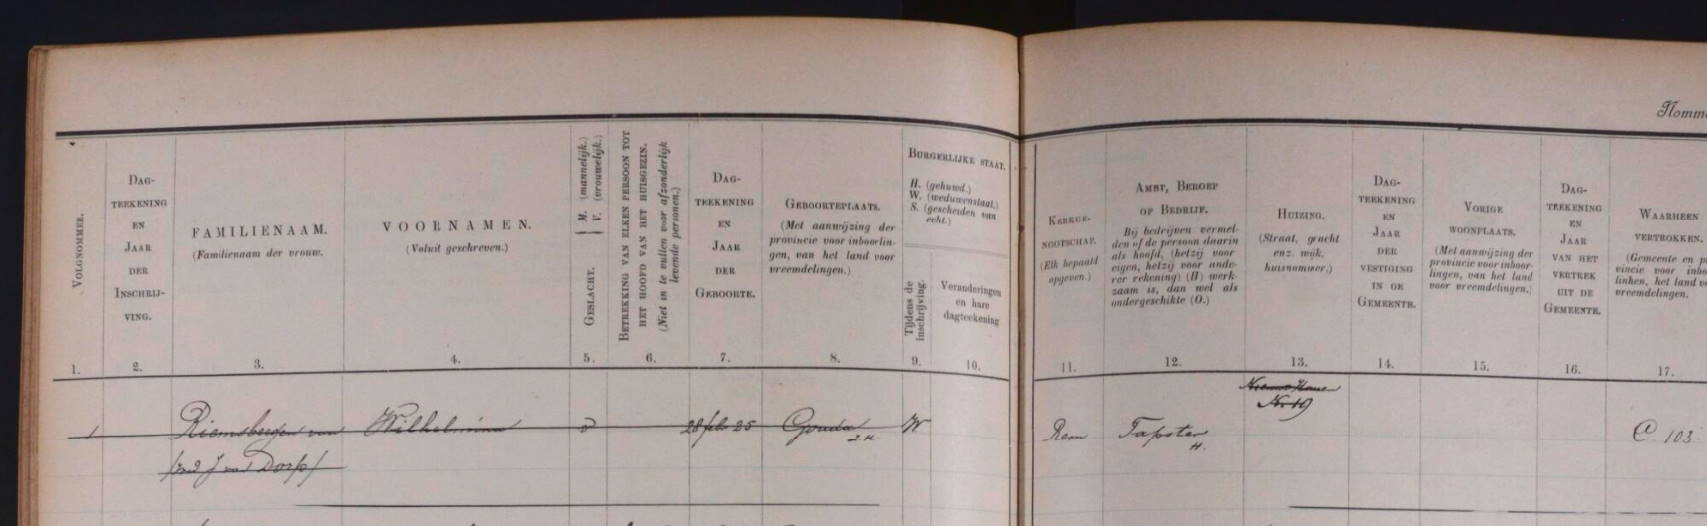 Nomm
VOLGNOMMER.
DAG-
TEEKENING
EN
JAAR
DER
INSCHRIJ-
VING.
FAMILIENAAM.
(Familienaam der vrouw.
VOORNAMEN.
(Voluit geschreven.)
GESLACHT. { M. (mannelijk.)
V. (vrouwelijk.)
BETREKKING VAN ELKEN PERSOON TOT
HET HOOFD VAN HET HUISGEZIN.
(Niet in te vullen voor afzonderlijk
levende personen.)
DAG-
TEEKENING
EN
JAAR
DER
GEBOORTE.
GEBOORTEPLAATS.
(Met aanwijzing der
provincie voor inboorlin-
gen, van het land voor
vreemdelingen.)
BURGERLIJKE STAAT.
H. (gehuwd.)
W. (weduwenstaat.)
S. (gescheiden van
echt.)
Tijdens de
inschrijving.
Veranderingen
en hare
dagteekening
KERKGE-
NOOTSCHAP.
(Elk bepaald
opgeven.)
AMBT, BEROEP
OF BEDRIJF.
Bij bedrijven vermel-
den of de persoon daarin
als hoofd, (hetzij voor
eigen, hetzij voor ande-
rer rekening) (H) werk-
zaam is, dan wel als
ondergeschikte (O.)
HUIZING.
(Straat, gracht
enz. wijk,
huisnommer.)
DAG-
TEEKENING
EN
JAAR
DER
VESTIGING
IN DE
GEMEENTE.
VORIGE
WOONPLAATS,
(Met aanwijzing der
provincie voor inboor-
lingen, van het land
voor vreemdelingen.)
DAG-
TEEKENING
EN
JAAR
VAN HET
VERTREK
UIT DE
GEMEENTE.
WAARHEEN
VERTROKKEN.
(Gemeente en p
vincie voor inbo
linken, het land v
vreemdelingen.
1. 2. 3. 4. 5. 6. 7. 8. 9. 10. 11. 12. 13. 14. 15. 16. 17.
No 19
1 Riemsbergen van Wilhelmina v 28 feb 25 Gouda W Rem Tapster C 103
Z.H. H.
J van Dorp/